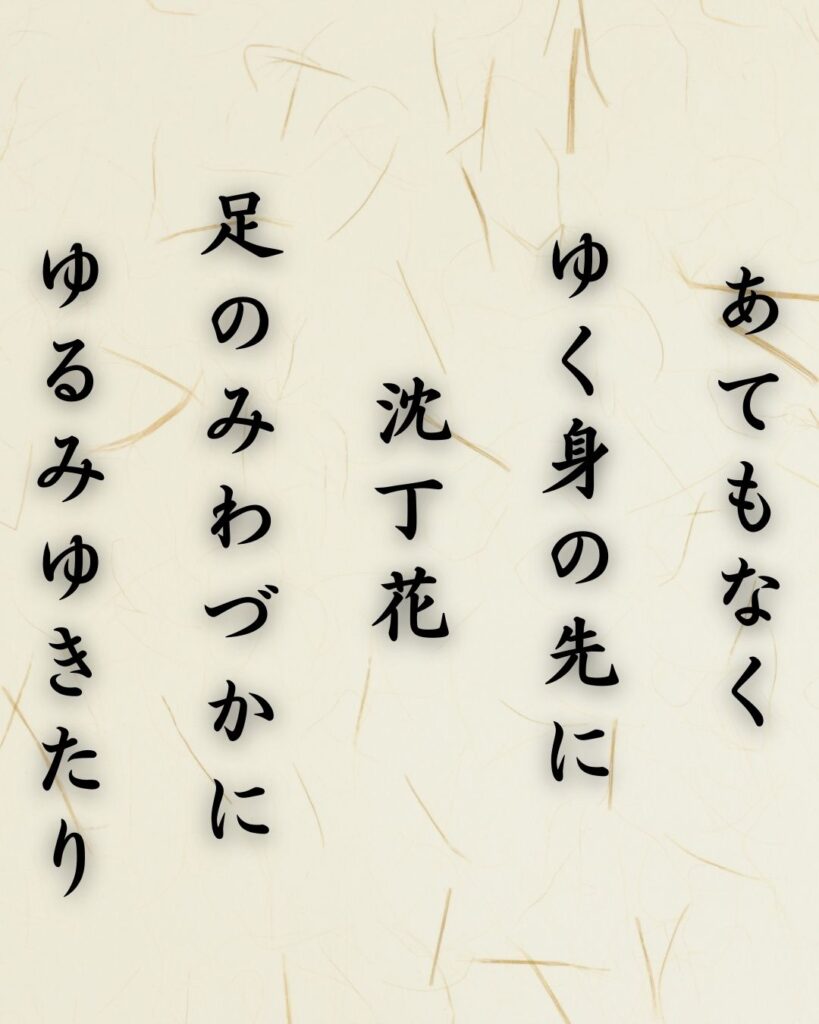 あてもなく
ゆく身の先に
沈丁花
足のみわづかに
ゆるみゆきたり